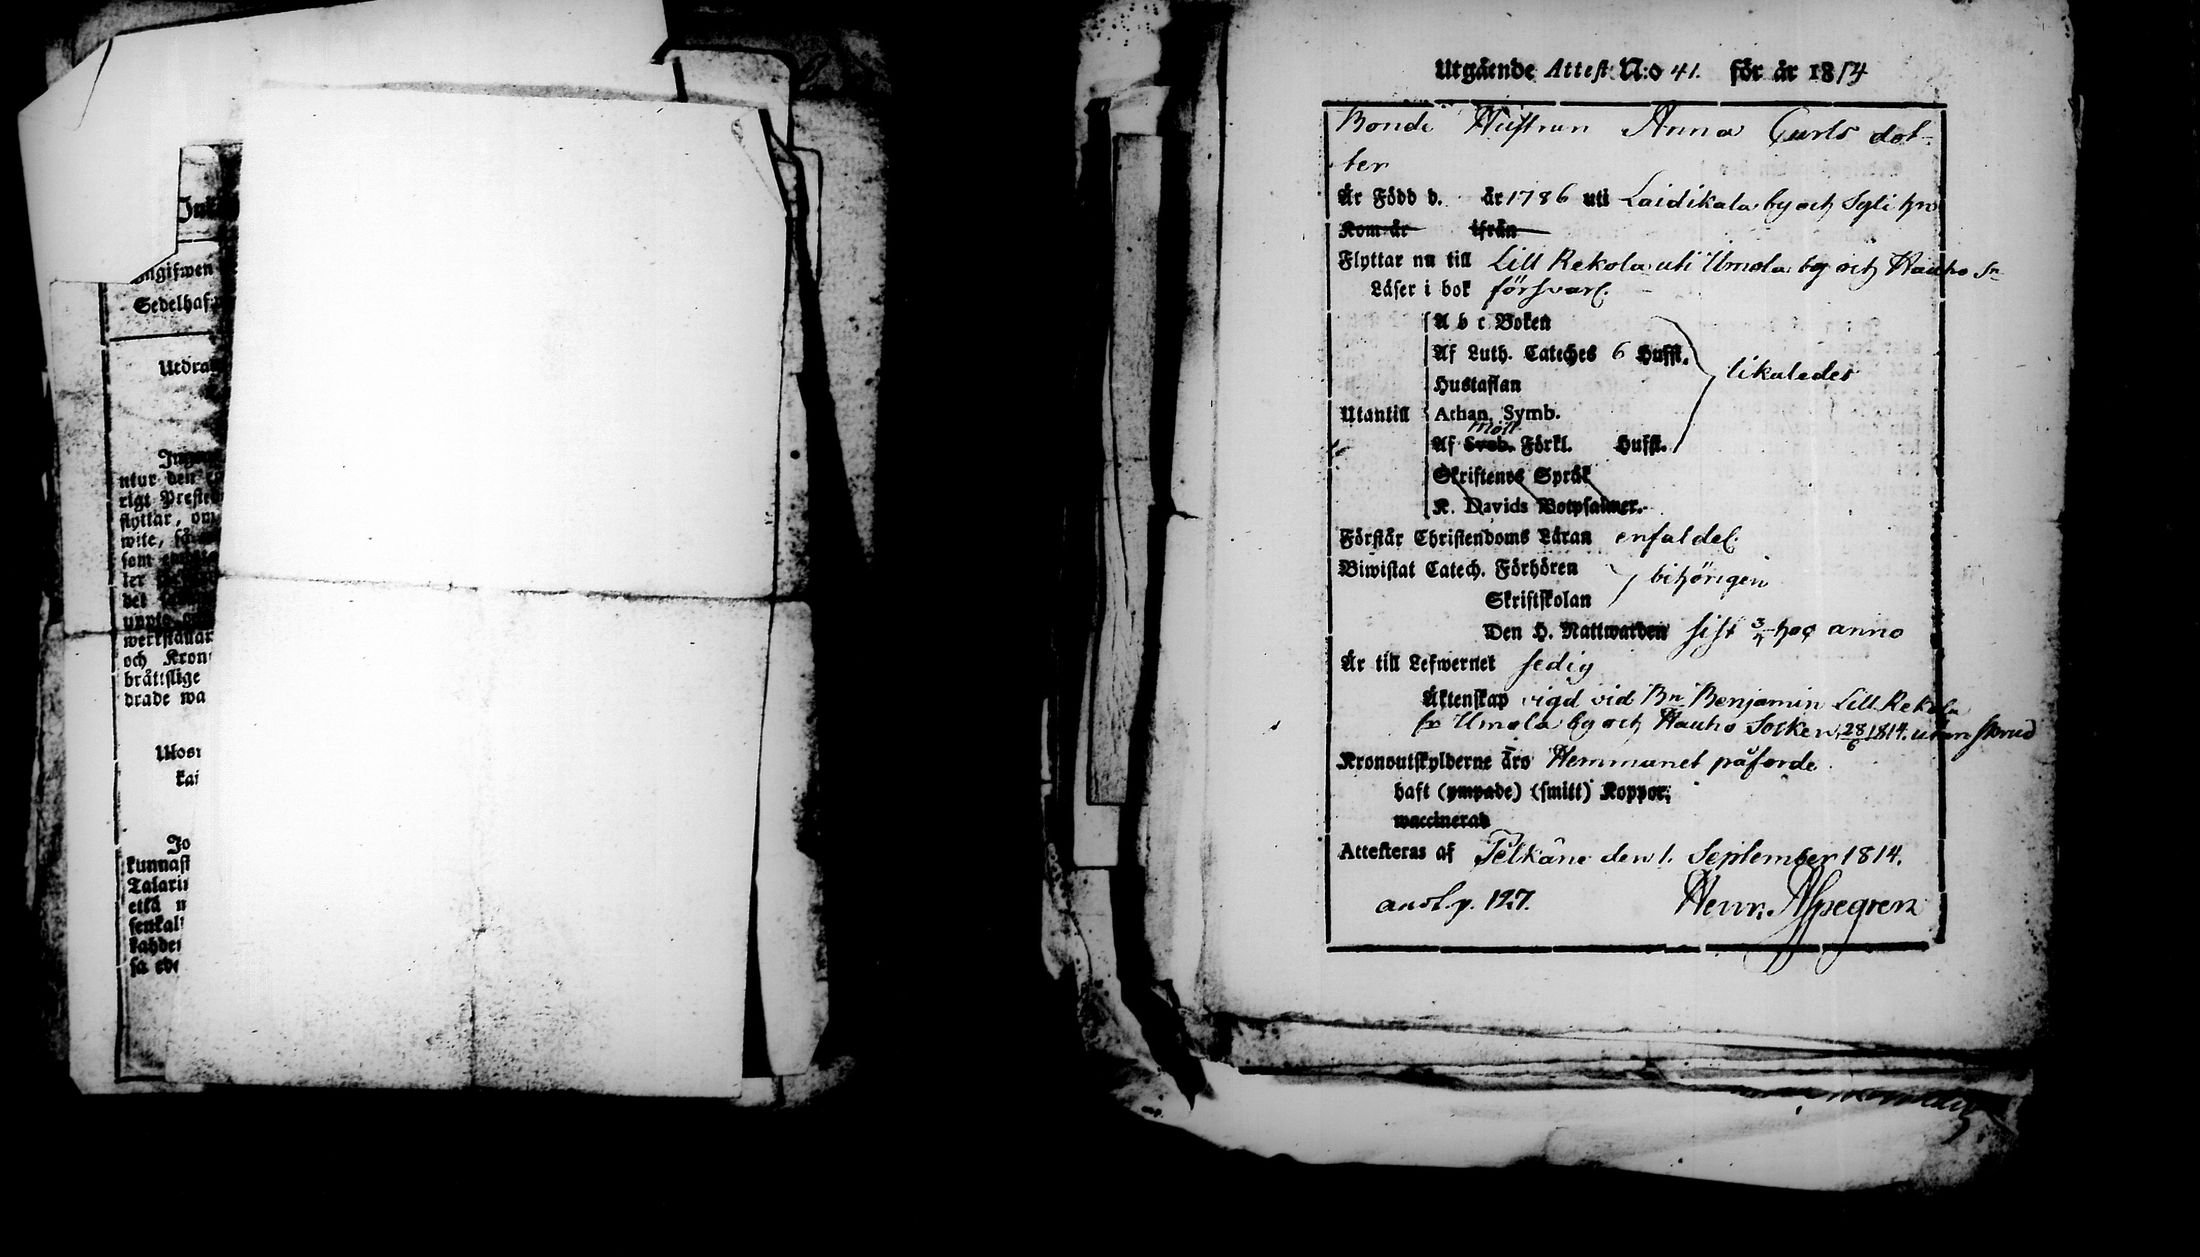 Ink
angifwen
Sedelhaf
Utdra
ntur den
rigt Prest
flyttar, om
wite, få
sam
ler
det
werkställar
och Kron
bråttslige
drade wa
kai
Jo
kunnast
Talarii
että n
senkali
kahdet
sa
Utgående Attest N:o 41. för år 1814
Bonde Hustrun Anna Carls dot-
ter
Är Född d. år 1786 uti Laidikala by och
Kom år ifrån
Flyttar nu till Lill Rekola uti Umola by och Hauho Sn
Läser i bok försvarl.
A b c Boken
Af Luth. Cateches 6 Hufst.
likaledes
Hustaflan
Utantill Athan. Symb.
Moll
Af Sveb. Förkl. Hufst.
Skriftenes Språk
K. Davids Botpsalmer.
Förstår Christendoms Läran enfaldel.
Biwistat Catech. Förhören
behörigen
Skriftskolan
Den H. Nattwarden sist 3/4 hoc anno
Är till Lefwernet sedig
Äktenskap vigd vid Bn Benjamin Lill Rekola
fr Umola by och Hauho Socken 28/6 1814. utan
Kronoutskylderne äro Hemmanet påförde
haft (ympade) (smitt) Koppor.
waccinerad
Attesteras af Pelkäne den 1. September 1814.
p. 127. Henr. Aspegren